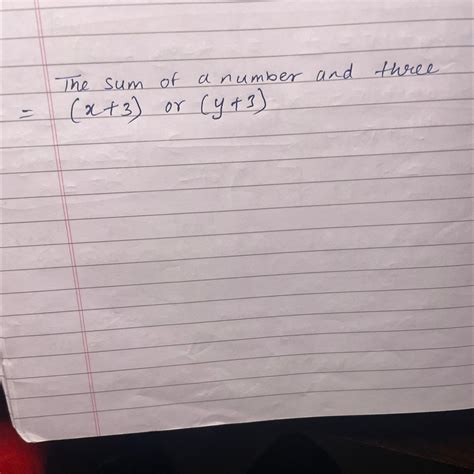 The sum of a number and three
= (x+3) or (y+3)